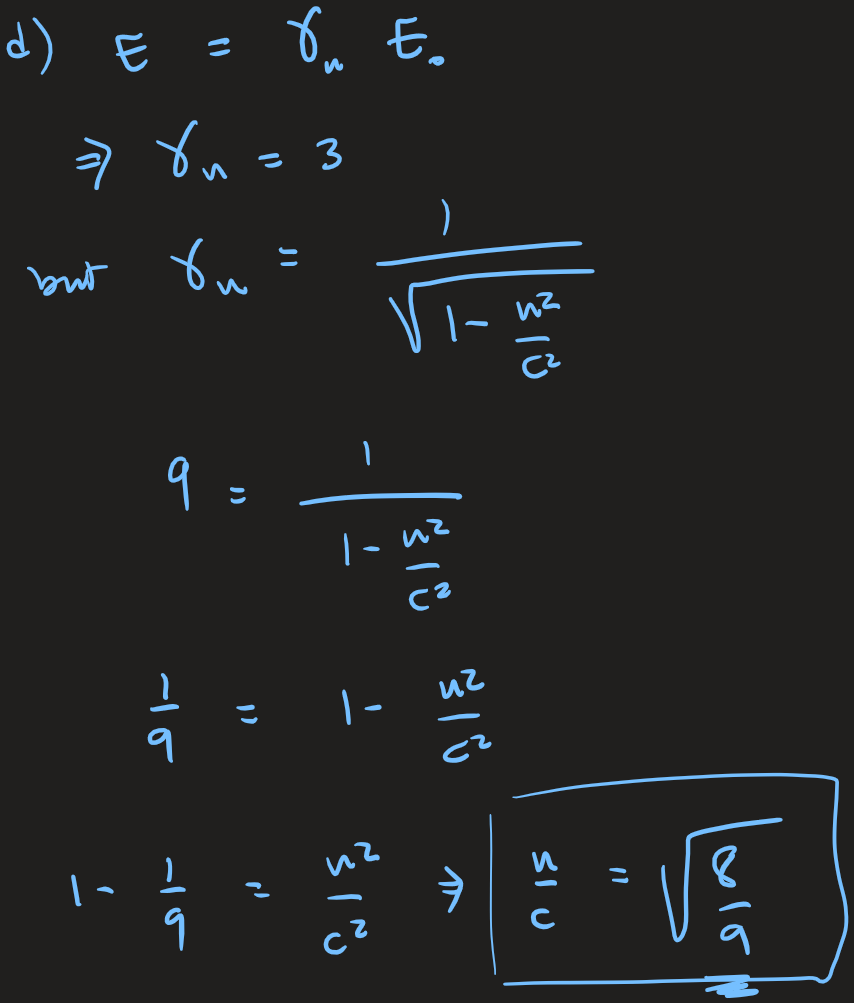 d) E = γᵤ E₀
⇒ γᵤ = 3
but γᵤ = 1 / √(1 - u²/c²)
9 = 1 / (1 - u²/c²)
1/9 = 1 - u²/c²
1 - 1/9 = u²/c² ⇒ u/c = √(8/9)